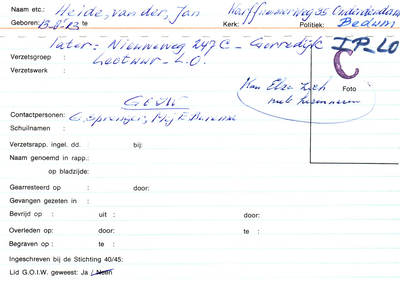 Naam etc.: Heide, van der, Jan Warffumerweg 35 Onderdendam
Geboren: 13-8-13 te Kerk: Politiek: Bedum
Later: Nieuweweg 247 C - Gorredijk IP-LO
Verzetsgroep : Lectuur - L.O.
Verzetswerk :
C
Foto
Kan Elze zich
niet herinneren
GOIW
Contactpersonen : G. Sprenger, Mej E.
Schuilnaam :
Verzetsrapp. ingel. dd. : bij:
Naam genoemd in rapp.:
op bladzijde:
Gearresteerd op : door:
Gevangen gezeten in :
Bevrijd op : uit : door:
Overleden op: door: te :
Begraven op : te :
Ingeschreven bij de Stichting 40/45:
Lid G.O.I.W. geweest: Ja / Neen